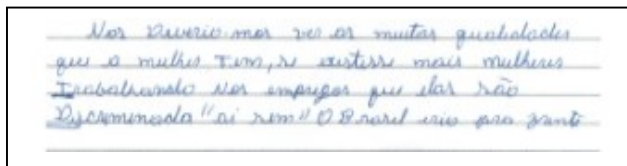 Nos Deverio mos ver as muitas qualidades
que a mulher Tem, se existisse mais mulheres
Trabalhando nos empregos que elas são
Discriminada "ai sim" O Brasil iria pra frente